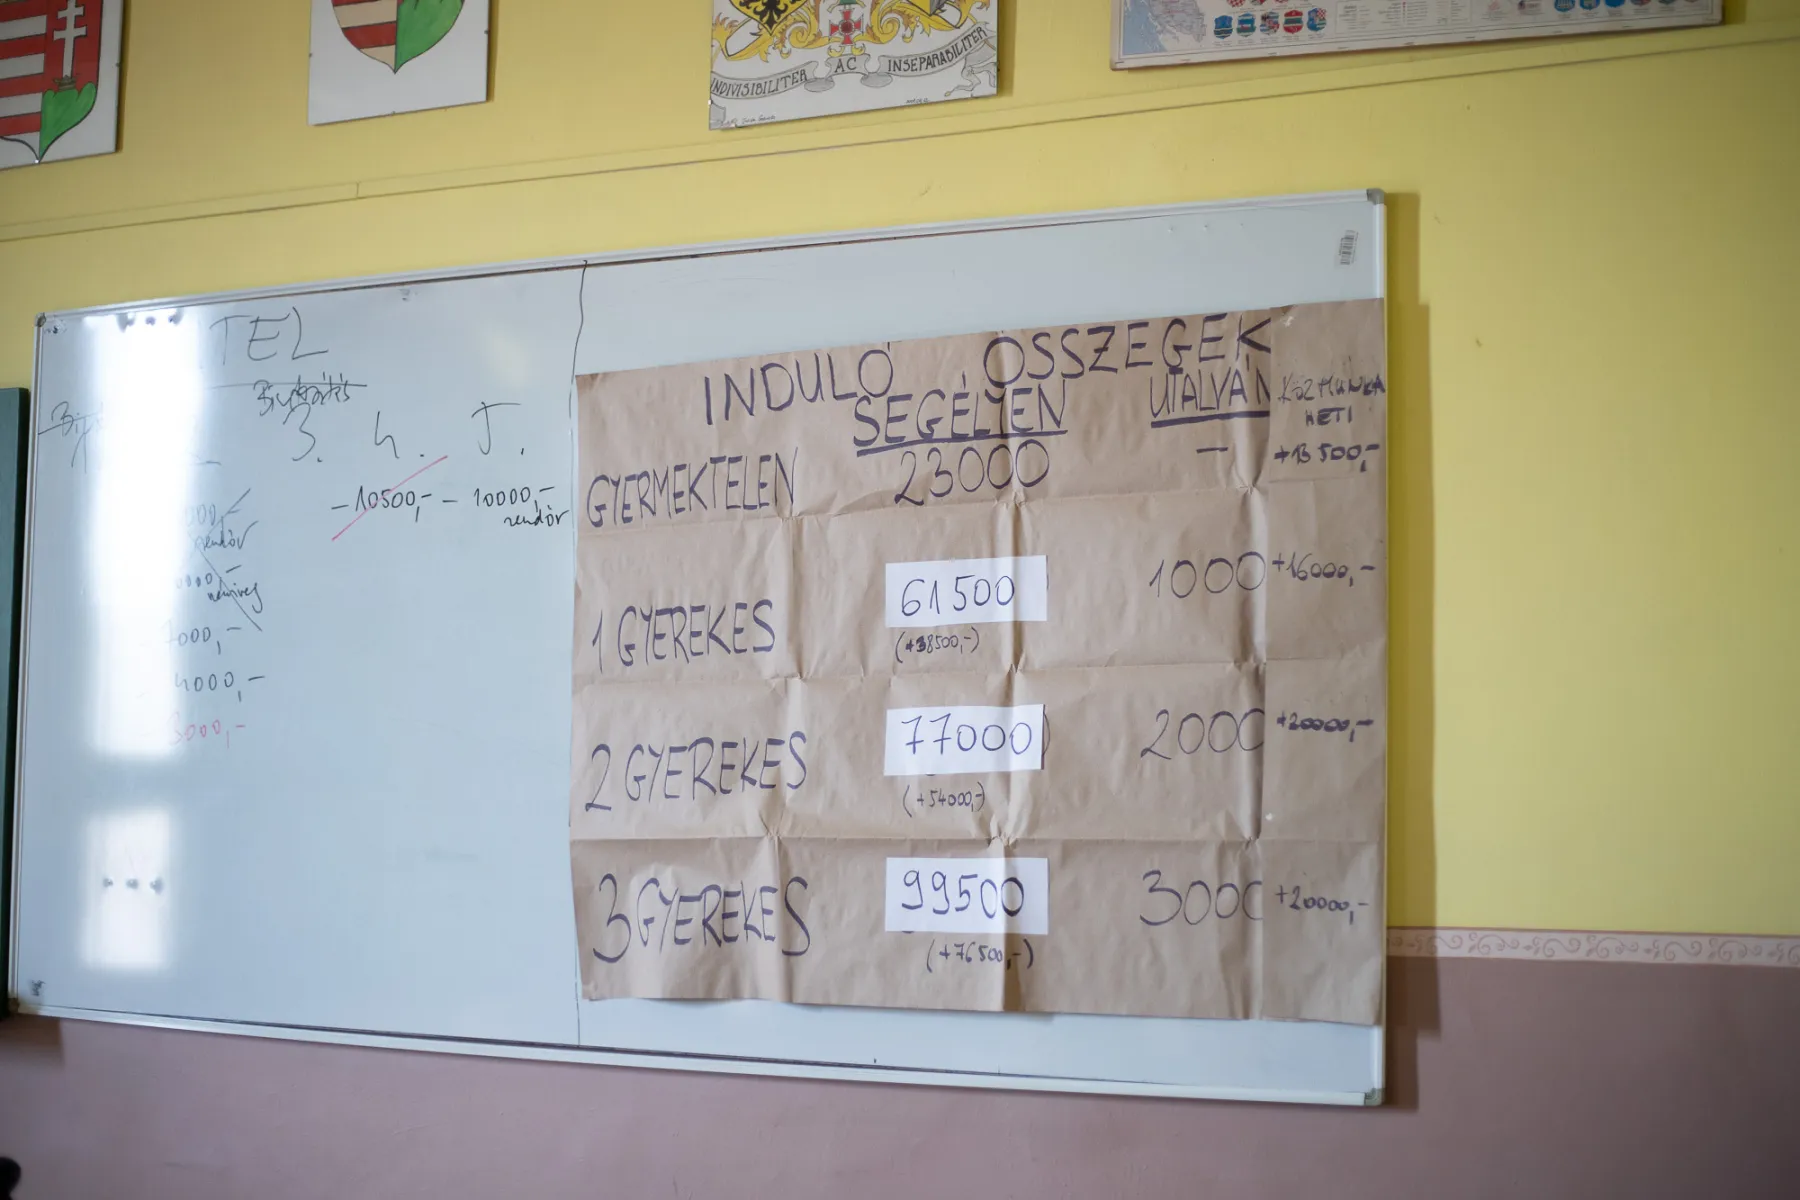 INDIVISIBILITER AC INSEPARABILITER
TEL
3. 4. 5.
-10500,- - 10000,-
rendőr
000,-
rendőr
000,-
4000,-
3000,-
INDULÓ ÖSSZEGEK
SEGÉLYEN UTALVÁN KÖZMUNKA
HETI
GYERMEKTELEN 23000 - +13500,-
1 GYEREKES 61500 1000 +16000,-
(+38500,-)
2 GYEREKES 77000 2000 +20000,-
(+54000,-)
3 GYEREKES 99500 3000 +20000,-
(+76500,-)